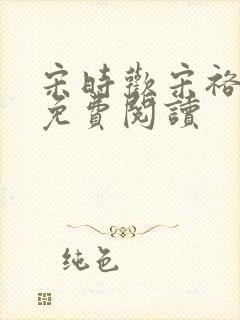 宋时欢宋裕
免費閱讀
纯色